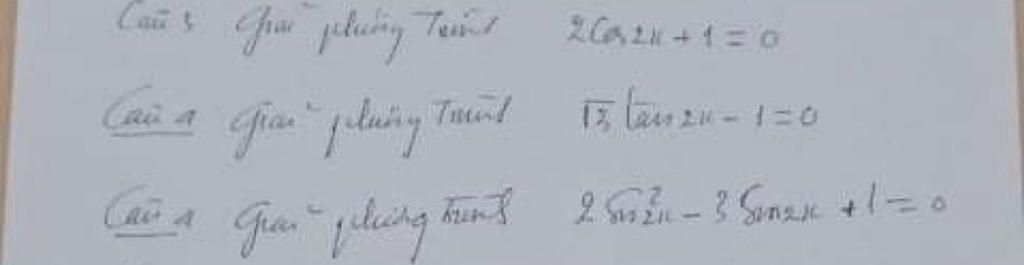 Câu 3 Giải phương trình 2Cos2x + 1 = 0
Câu 4 Giải phương trình √3 tan2x - 1 = 0
Câu 4 Giải phương trình 2Sin²2x - 3Sin2x + 1 = 0